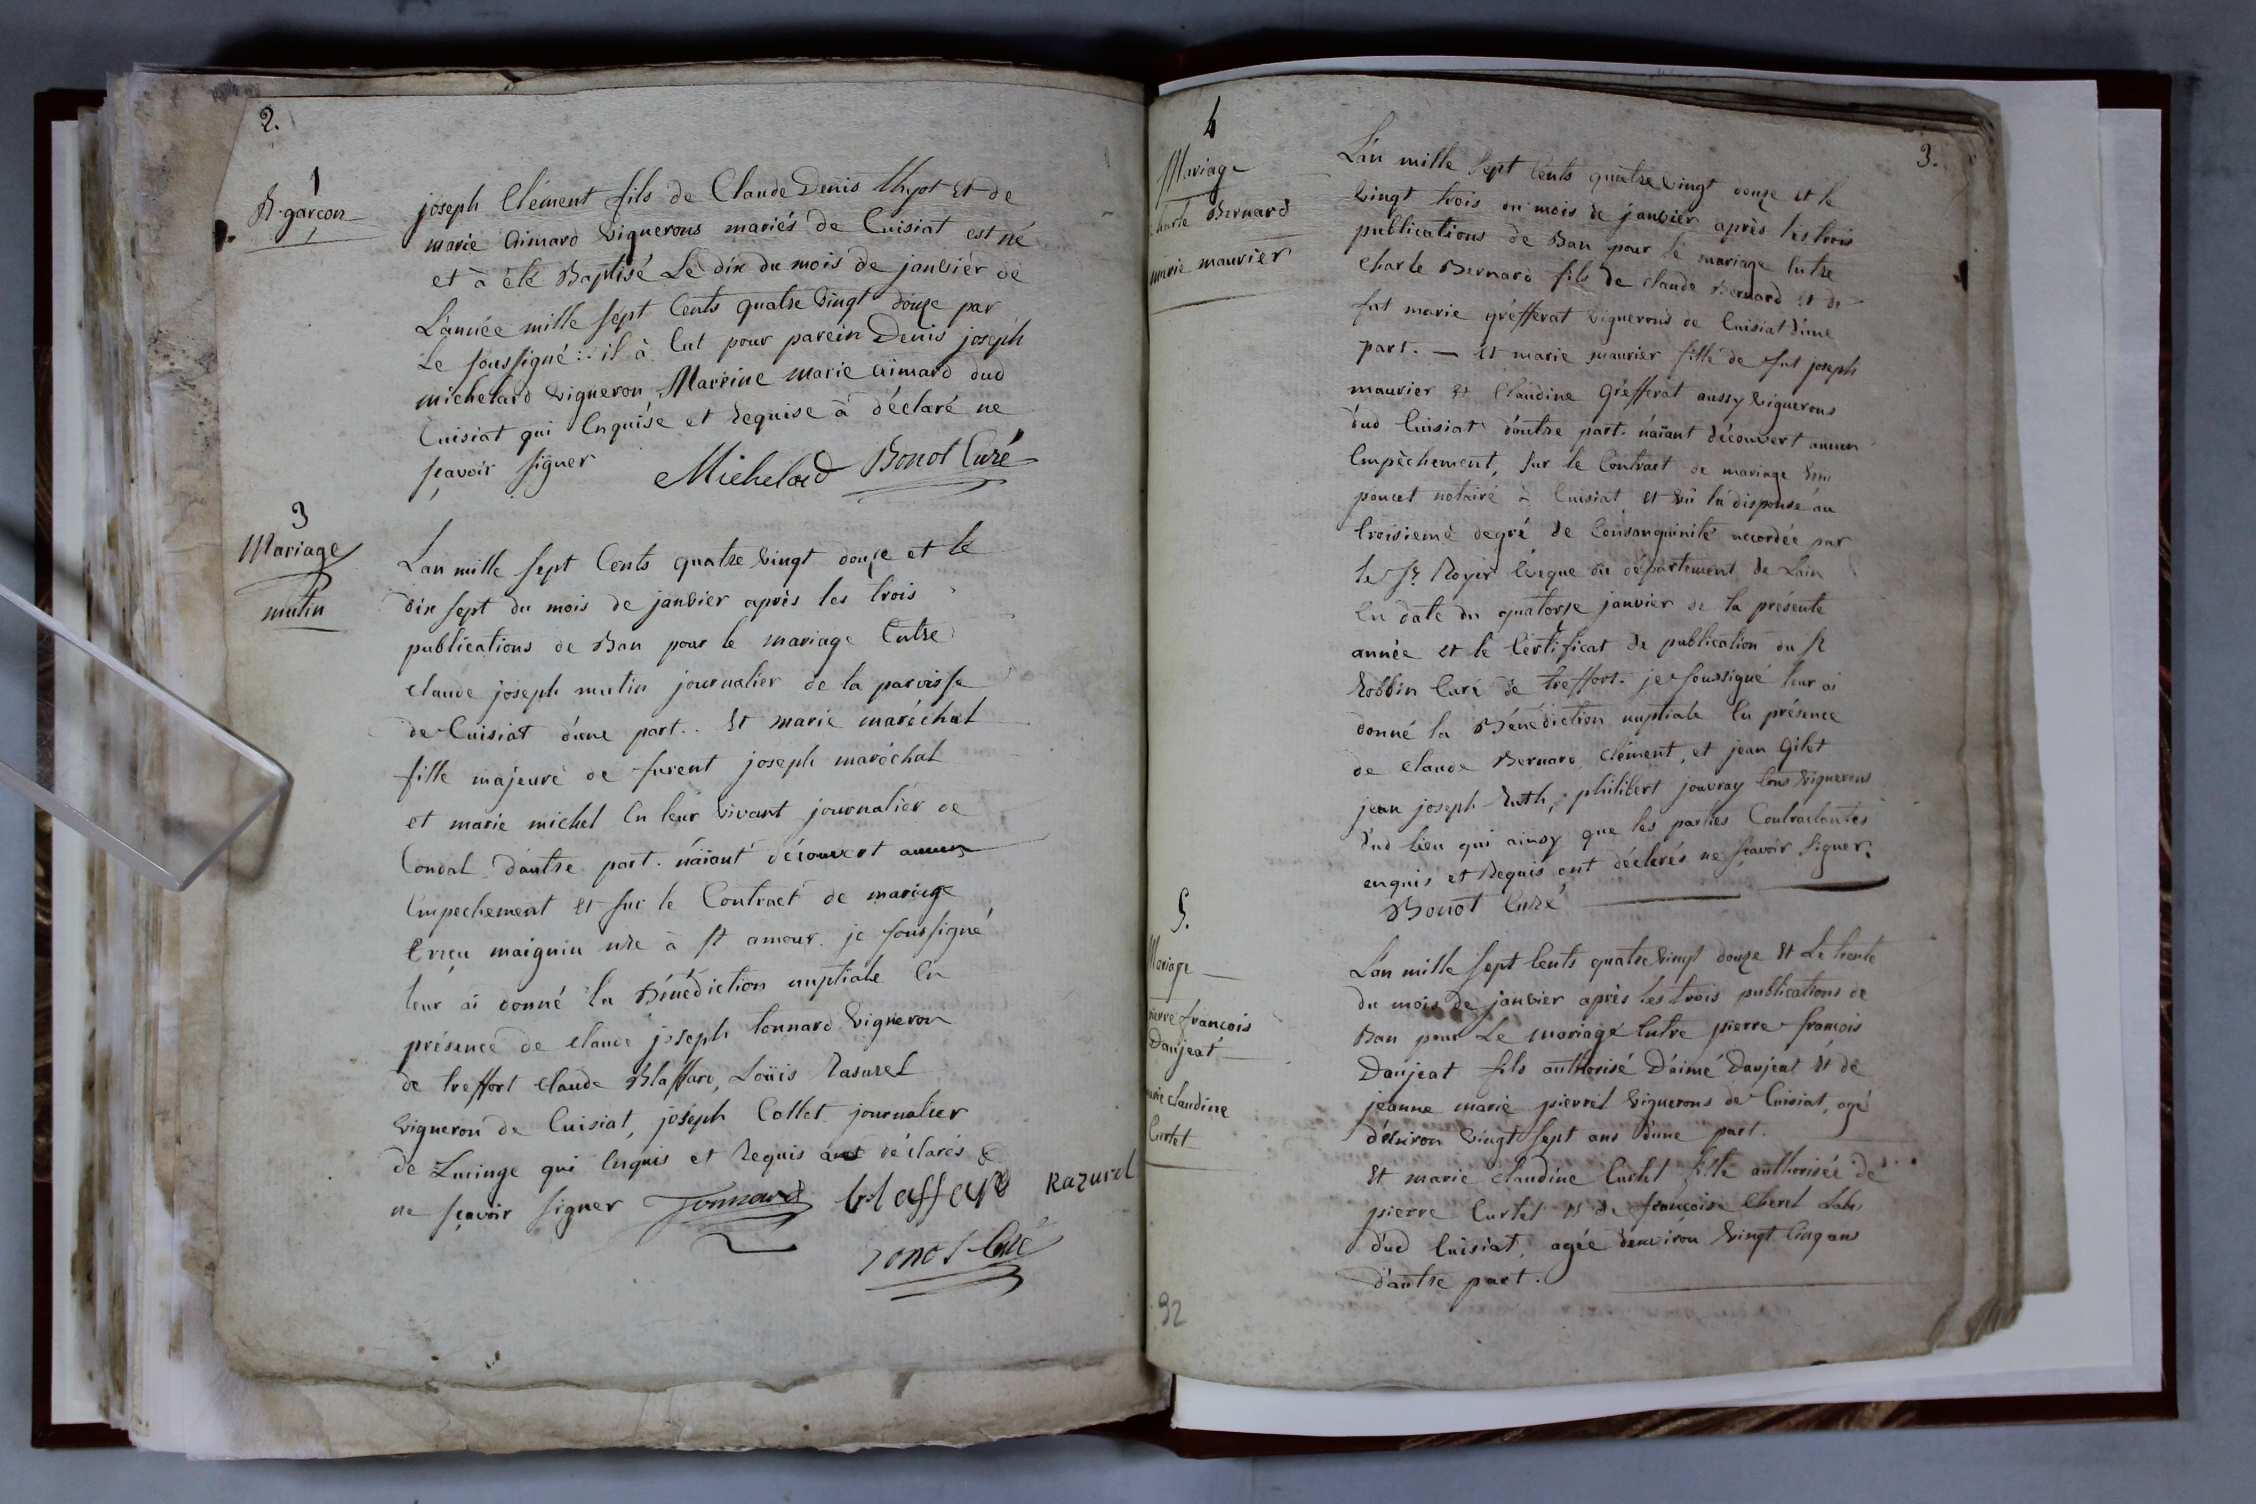 2.
1
B. garçon
joseph Clément fils de Claude Denis thyot et de
marie Aimard vignerons mariés de Cuisiat est né
et à été Baptisé Le dix du mois de janvier de
L'année mille sept Cents quatre vingt douze par
Le soussigné : il à Eut pour parein Denis joseph
michelard vigneron Marrine marie aimard dud
Cuisiat qui Enquise et Requise à déclaré ne
sçavoir signer Michelard Bonot Curé
3
Mariage
mutin
Lan mille sept Cents quatre vingt douze et le
dix sept du mois de janvier après les trois
publications de Ban pour le mariage Entre
claude joseph mutin journalier de la paroisse
de Cuisiat d'une part. Et marie maréchal
fille majeure de furent joseph maréchal
et marie michel En leur vivant journalier de
Condal D'autre part. n'aiant découvert aucun
Empechement et sur le Contract de mariage
Erreçu maignin nre à st amour. je soussigné
leur ai donné la Bénédiction nuptiale En
présence de claude joseph tonnard vigneron
de treffort claude Blaffard, Loüis Rasurel
vigneron de Cuisiat, joseph Collet journalier
de Lucinge qui Enquis et Requis ont déclarés
ne sçavoir signer Tonnard blaffard Razurel
Bonot Curé
4
3.
Mariage
charle Bernard
marie maurier
L'an mille sept Cents quatre vingt douze et le
vingt trois du mois de janvier après les trois
publications de Ban pour le mariage Entre
charle Bernard fils de claude Bernard et de
fut marie grefferat vignerons de Cuisiat d'une
part. — Et marie maurier fille de fut joseph
maurier et Claudine Grefferat aussy vignerons
dud Cuisiat d'autre part. n'aïant découvert aucun
Empèchement, sur le Contract de mariage
poncet notaire à Cuisiat et vû la dispense au
troisieme degré de Consanguinité accordée par
le Sr Royer Evêque du département de Lain
En date du quatorse janvier de la présente
année et le Certificat de publication du Sr
Robbin Curé de treffort. je soussigné leur ai
donné la Bénédiction nuptiale En présence
de claude Bernard, Clément, et jean Gilet
jean joseph Ruth, philibert jouvray tous vignerons
dud lieu qui ainsy que les parties Contractantes
enquis et Requis ont déclarés ne sçavoir signer.
Bonot Curé
5.
Mariage
pierre françois
Daujeat
marie claudine
Curtet
L'an mille sept Cents quatre vingt douze Et Le trente
du mois de janvier après les trois publications de
Ban pour Le mariage Entre pierre francois
Daujeat fils authorisé D'aimé Daujeat Et de
jeanne marie pierrel vignerons de Cuisiat, agé
d'environ vingt sept ans d'une part.
Et marie claudine Curtet fille authorisée de
pierre Curtet et de françoise Cherel Labs
dud Cuisiat, agée d'environ vingt Cinq ans
d'autre part.
92